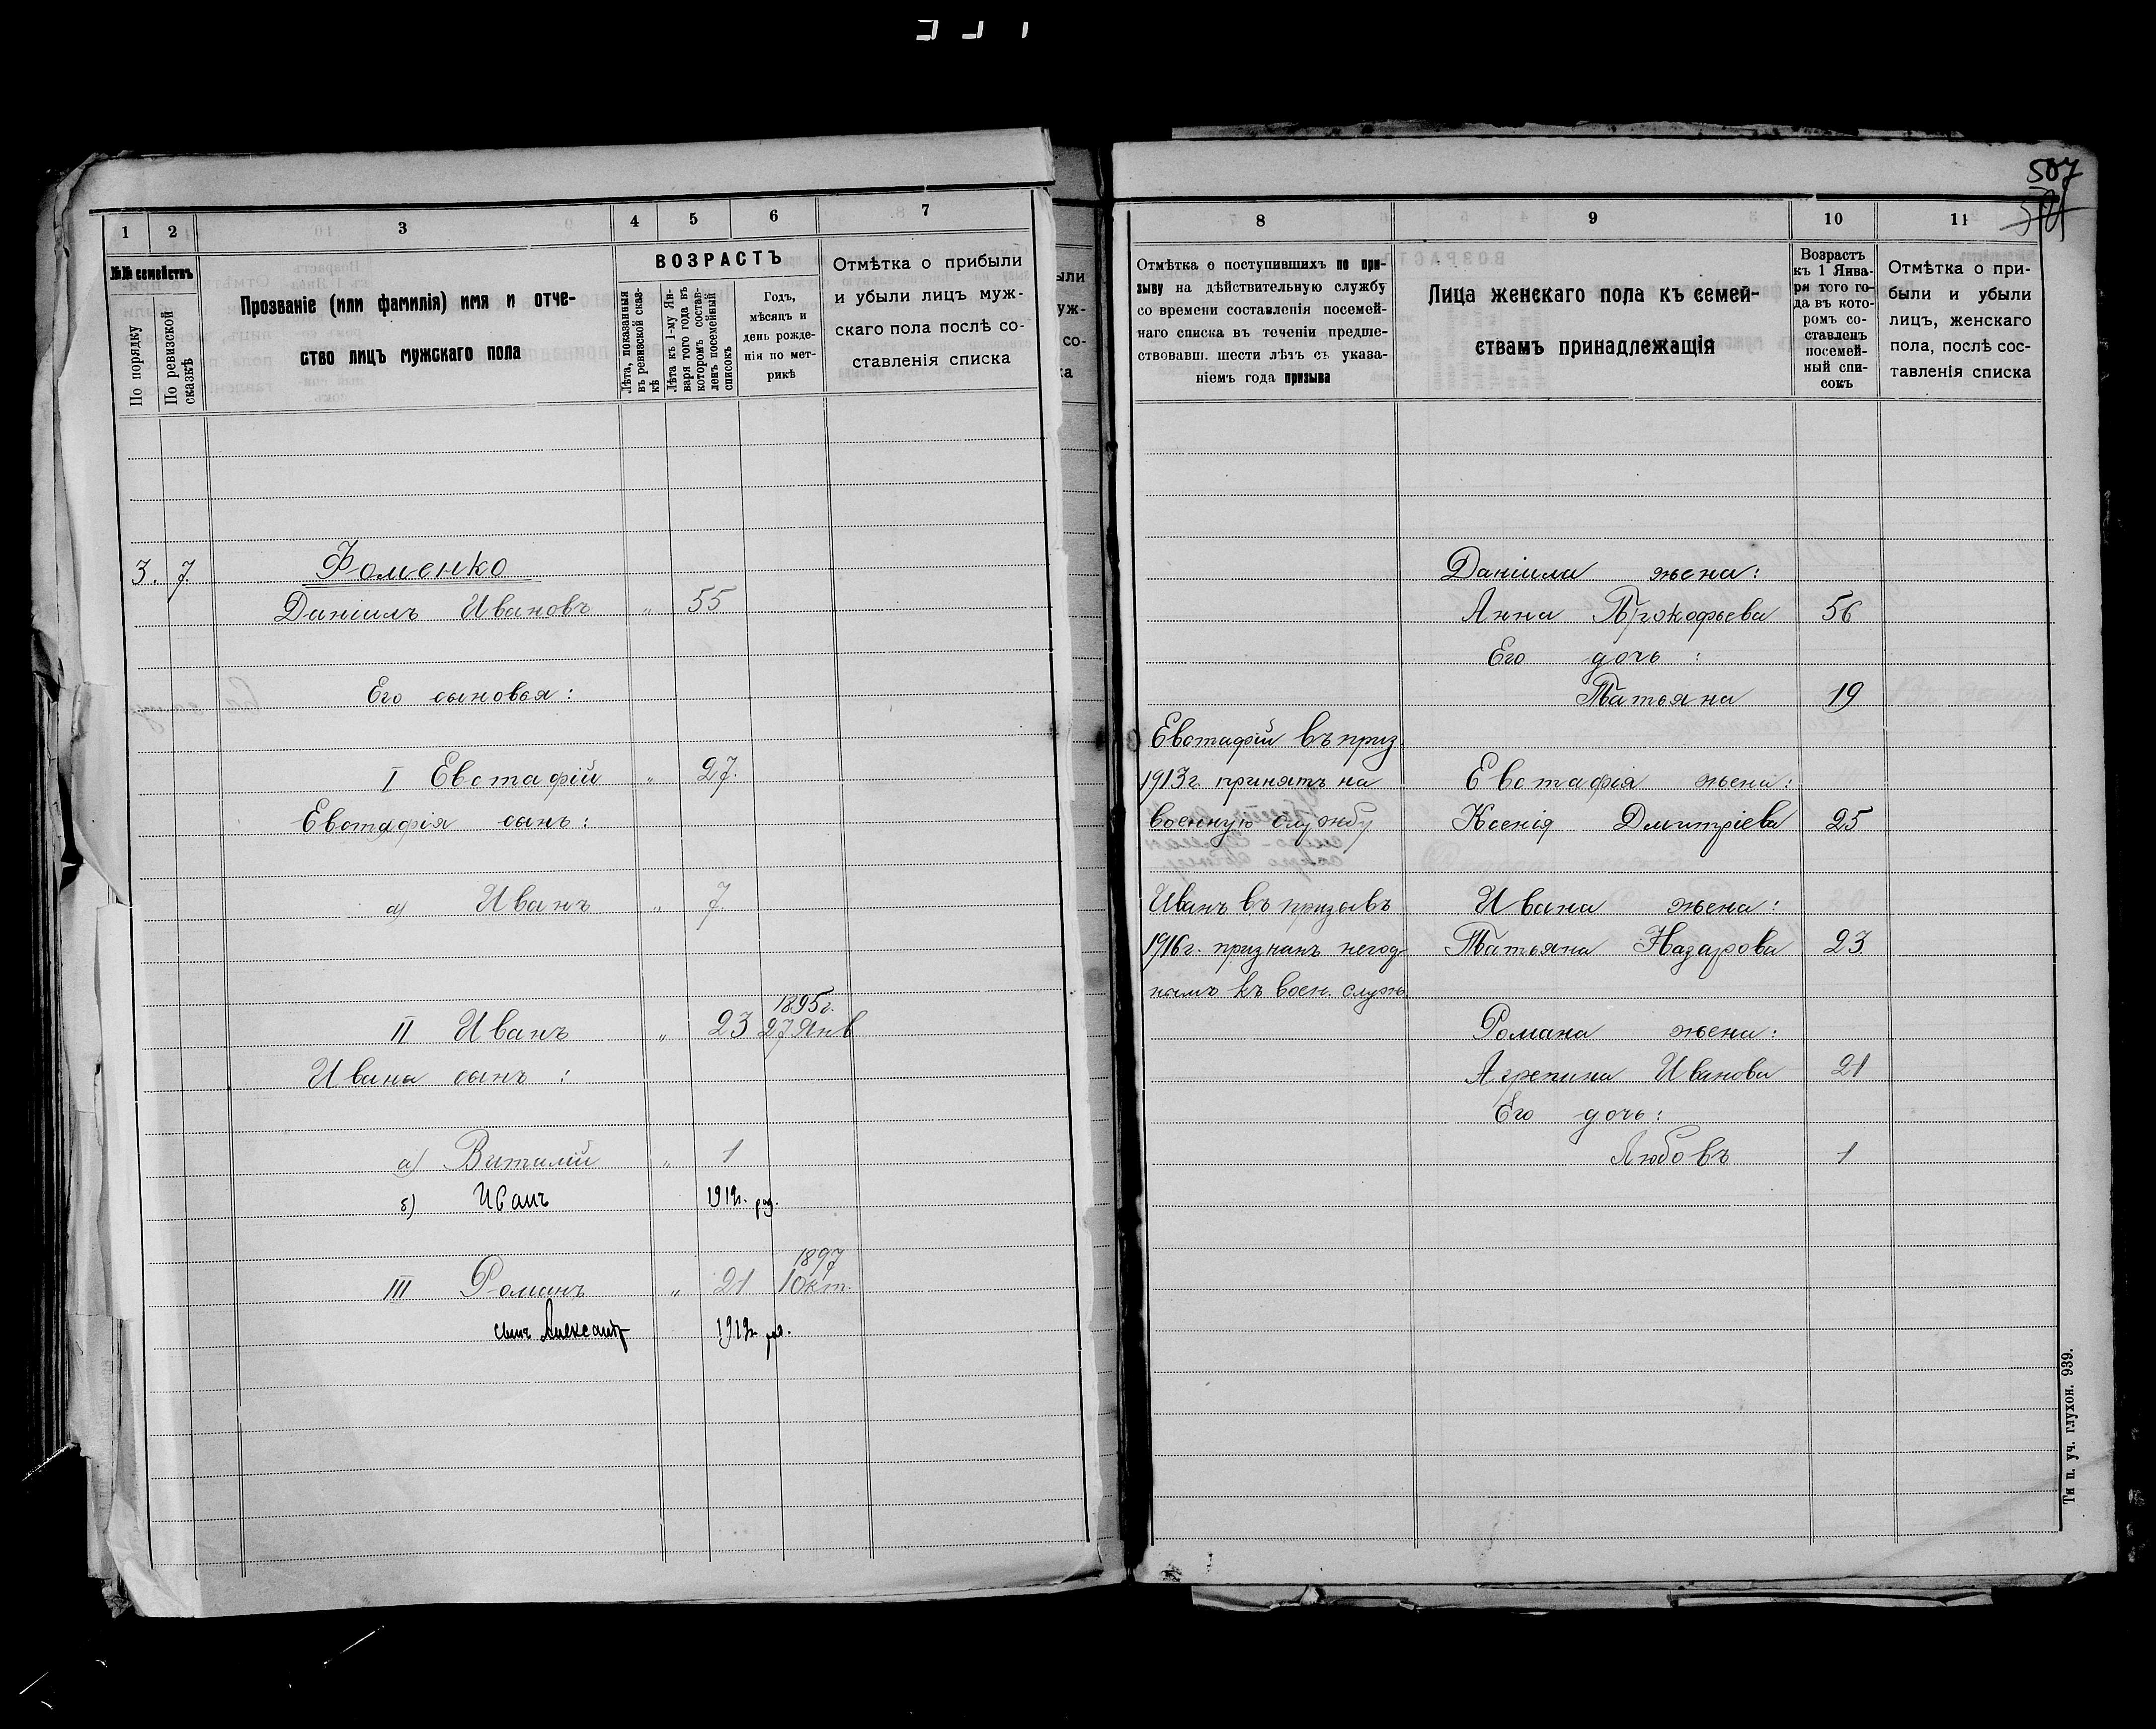 507
1 2 3 4 5 6 7
№№ семействъ
По порядку
По ревизской сказкѣ
Прозваніе (или фамилія) имя и отче-
ство лицъ мужскаго пола
ВОЗРАСТЪ
Лѣта, показанныя въ ревизской сказ-кѣ
Лѣта къ 1-му Ян-варя того года въ которомъ состав-ленъ посемейный списокъ
Годъ,
мѣсяцъ и
день рожде-
нія по мет-
рикѣ
Отмѣтка о прибыли
и убыли лицъ муж-
скаго пола послѣ со-
ставленія списка
3. 7. Фоменко
Даніилъ Ивановъ „ 55
Его сыновья:
I Евстафій „ 27.
Евстафія сынъ:
а) Иванъ „ 7.
1895г.
II Иванъ „ 23 27 Янв
Ивана сынъ:
а) Виталій „ 1
б) Иванъ 1919г. рд.
1897
III Романъ „ 21 1 Окт.
сынъ Александр 1919г. рд.
8 9 10 11
Отмѣтка о поступившихъ по при-
зыву на дѣйствительную службу
со времени составленія посемей-
наго списка въ теченіи предше-
ствовавш. шести лѣтъ съ указа-
ніемъ года призыва
Лица женскаго пола къ семей-
ствамъ принадлежащія
Возрастъ
къ 1 Янва-
ря того го-
да въ кото-
ромъ со-
ставленъ
посемей-
ный спи-
сокъ
Отмѣтка о при-
были и убыли
лицъ, женскаго
пола, послѣ сос-
тавленія списка
Даніила жена:
Анна Прокофьева 56
Его дочь:
Татьяна 19
Евстафій въ приз.
1913г. принятъ на Евстафія жена:
военную службу Ксенія Дмитріева 25
Иванъ въ призывъ Ивана жена:
1916г. признанъ негод Татьяна Назарова 23
нымъ къ воен. служ.
Романа жена:
Агрепина Иванова 21
Его дочь:
Любовь 1
Ти п. уч. глухон. 939.